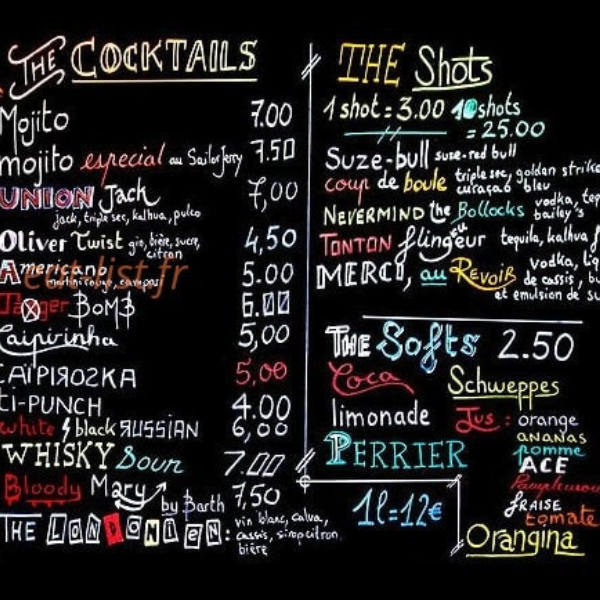 THE COCKTAILS
Mojito 7.00
mojito especial au Sailor Jerry 7.50
UNION Jack 7,00
jack, triple sec, kalhua, pulco
Oliver Twist gin, bière, sucre, citron 4,50
Americano 5.00
martini rouge, campari
eatlist.fr
Jager BOMB 6.00
Caipirinha 5,00
CAÏPIROZKA 5,00
TI-PUNCH 4.00
white & black RUSSIAN 6,00
WHISKY Sour 7.00
Bloody Mary by Barth 7,50
THE LONDONIEN : vin blanc, calva,
cassis, sirop citron,
bière
THE Shots
1 shot = 3.00 10 shots
= 25.00
Suze-bull suze-red bull
coup de boule triple sec, golden strike
curaçao bleu
NEVERMIND the Bollocks vodka,
bailey's
TONTON flingueur tequila, kalhua
MERCI, au Revoir vodka,
de cassis,
et emulsion de
THE Softs 2.50
Coca
Schweppes
limonade
Jus : orange
ANANAS
PERRIER
pomme
ACE
Pamplemousse
FRAISE
tomate
1l=12€
Orangina